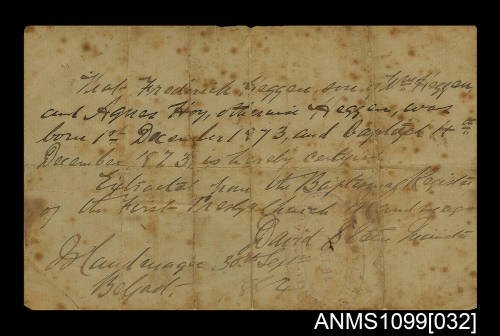 That Frederick Heggen, son of Wm Heggen
and Agnes Hoy, otherwise Heggen, was
born 1st December 1873, and baptized 14th
December 1873, is hereby certified
Extracted from the Baptismal Register
of the First Presby. Church Islandmagee
David Steen Minister
Islandmagee 30th Sept
Belfast.
ANMS1099[032]